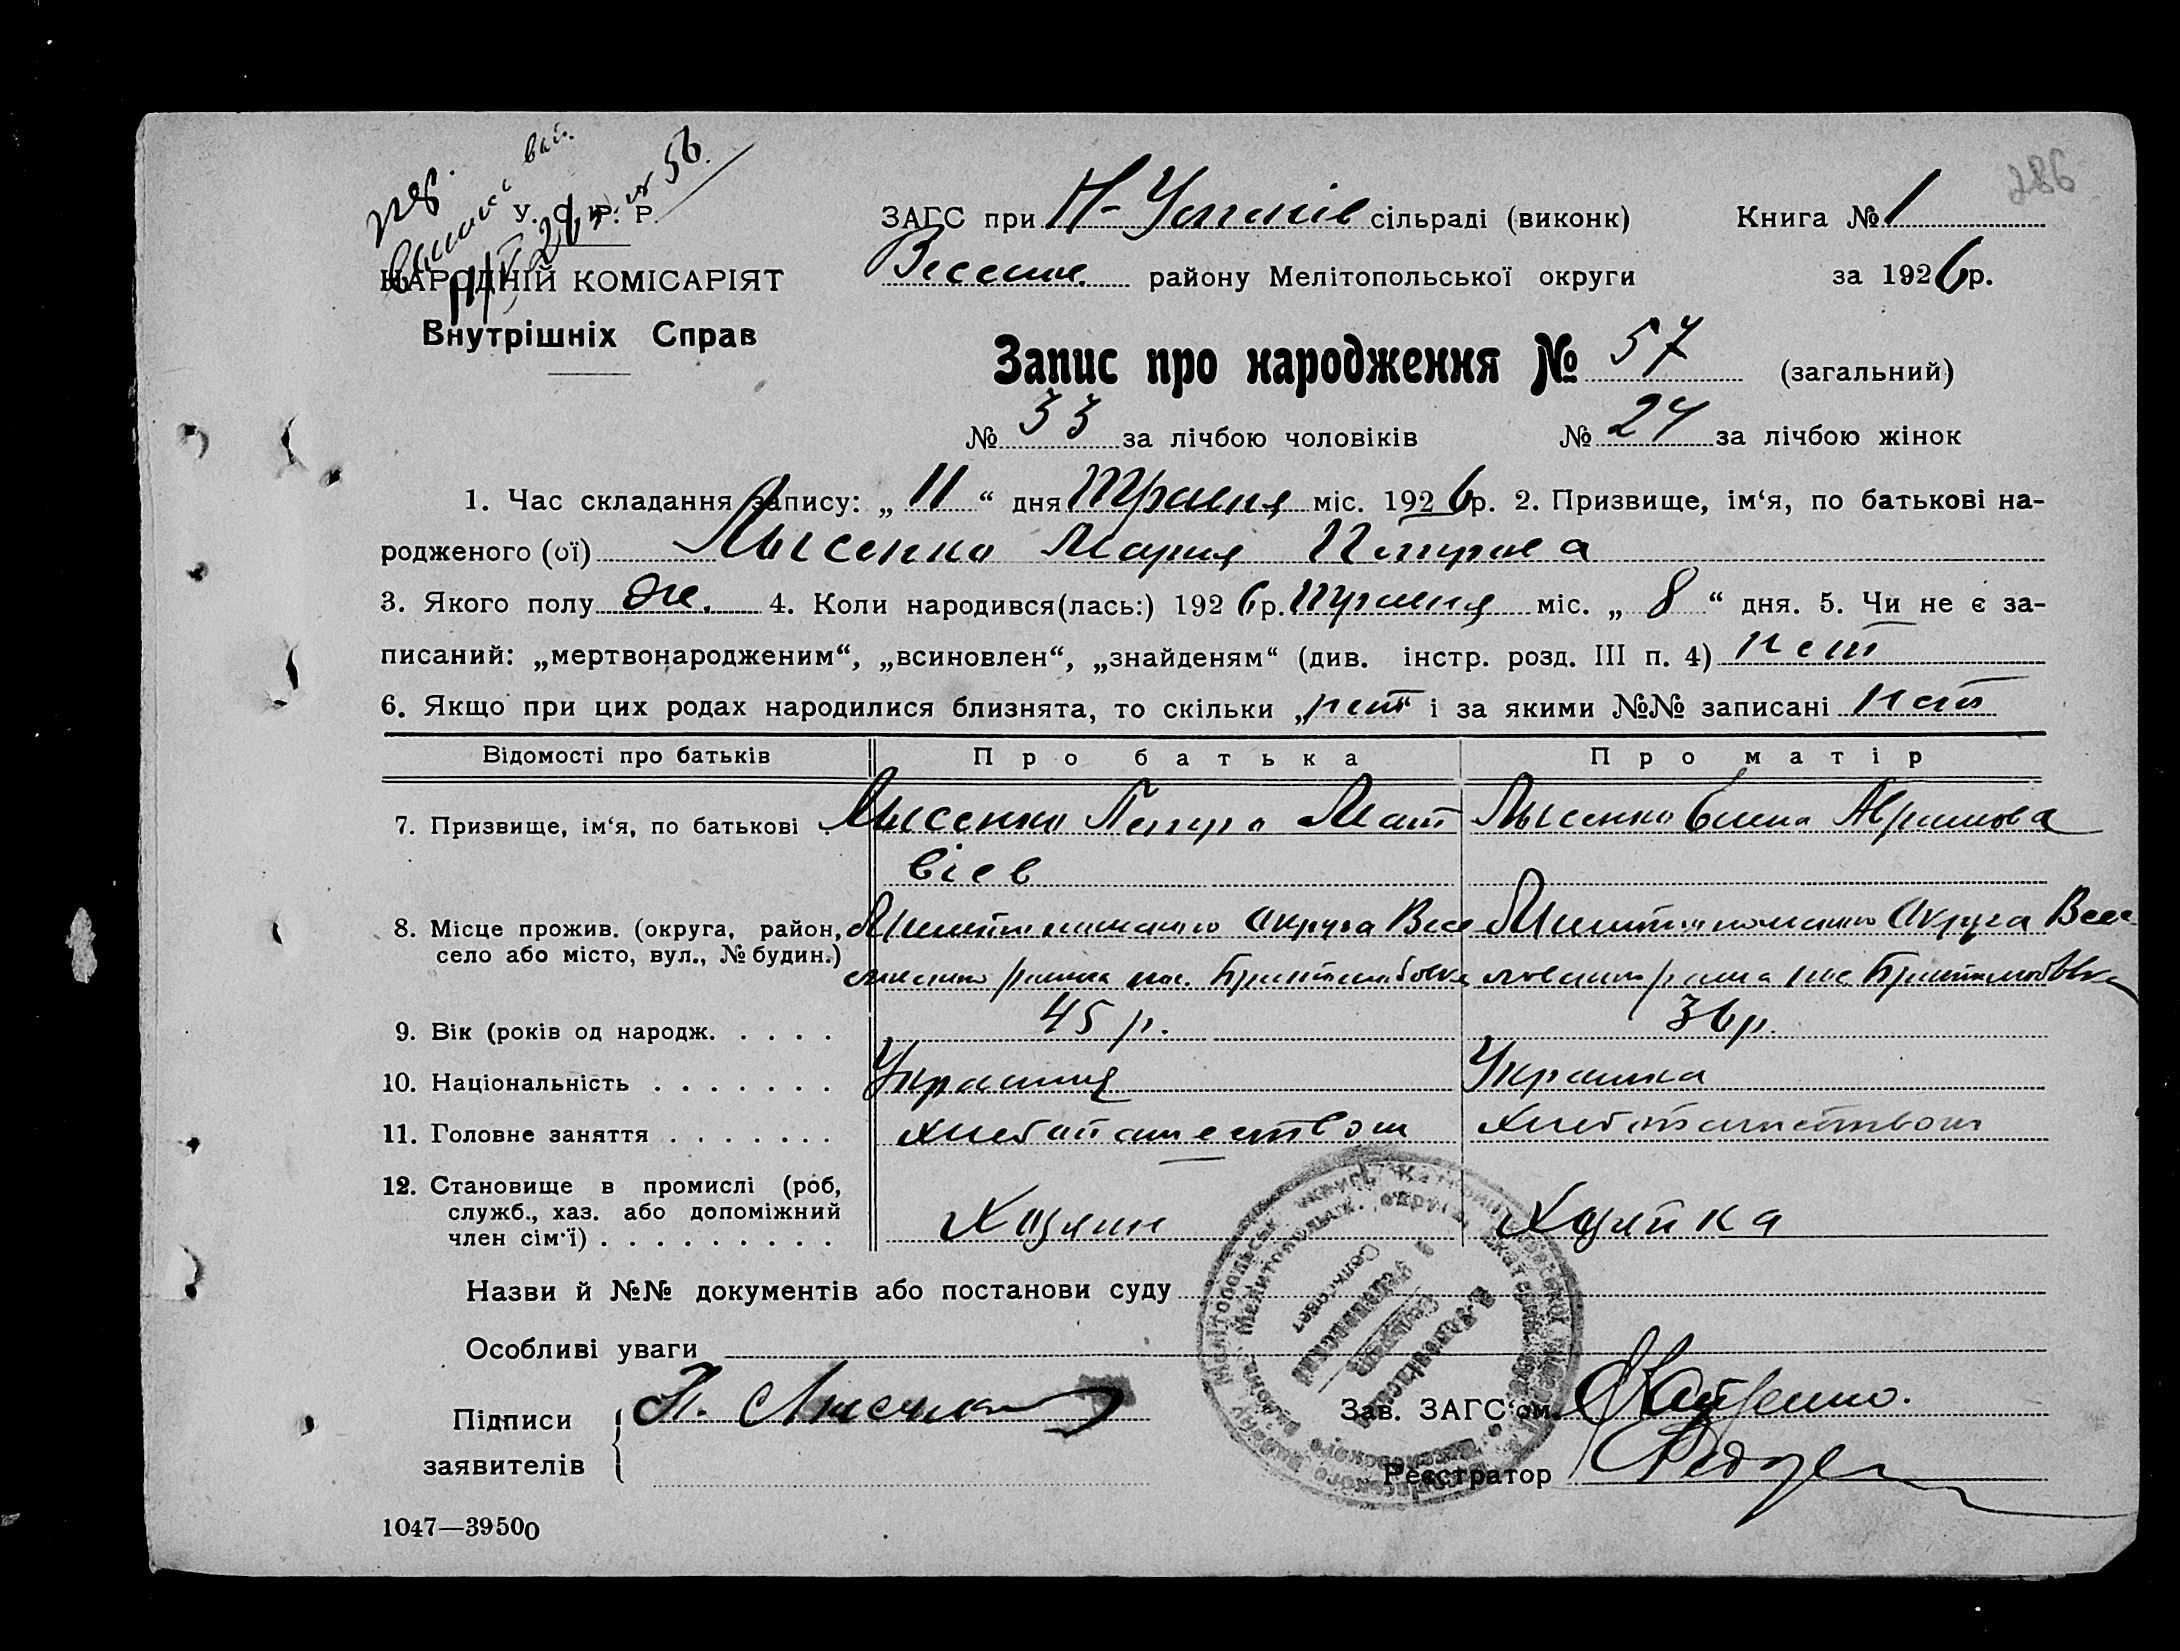 286
У. С. Р. Р.
НАРОДНІЙ КОМІСАРІЯТ
Внутрішніх Справ
ЗАГС при Н- сільраді (виконк) Книга № 1
району Мелітопольської округи за 1926р.
Запис про народження № 57 (загальний)
№ 33 за лічбою чоловіків № 24 за лічбою жінок
1. Час складання запису: „ 11 “ дня Травня міс. 1926р. 2. Призвище, ім‘я, по батькові на-
родженого (ої) Лысенко Мария Петрова
3. Якого полу Же. 4. Коли народився(лась:) 1926р. травня міс. „ 8 “ дня. 5. Чи не є за-
писаний: „мертвонародженим“, „всиновлен“, „знайденям“ (див. інстр. розд. III п. 4) нет
6. Якщо при цих родах народилися близнята, то скільки „нет“ і за якими №№ записані нет
Відомості про батьків Про батька Про матір
7. Призвище, ім‘я, по батькові Лысенко Петро Мат Лысенко Абрамова
вієв
8. Місце прожив. (округа, район, Округа Весе Округа Весе
село або місто, вул., № будин.)
9. Вік (років од народж. . . . . 45 р. 36 р.
10. Національність . . . . . . . Украинец Украинка
11. Головне заняття . . . . . . . хлебопашеством хлебопашеством
12. Становище в промислі (роб,
служб., хаз. або допоміжний Хозяин Хозяйка
член сім‘ї) . . . . . . . . .
Назви й №№ документів або постанови суду
Особливі уваги
Підписи П. Лисенко Зав. ЗАГС‘ом
заявителів Реєстратор
1047—39500